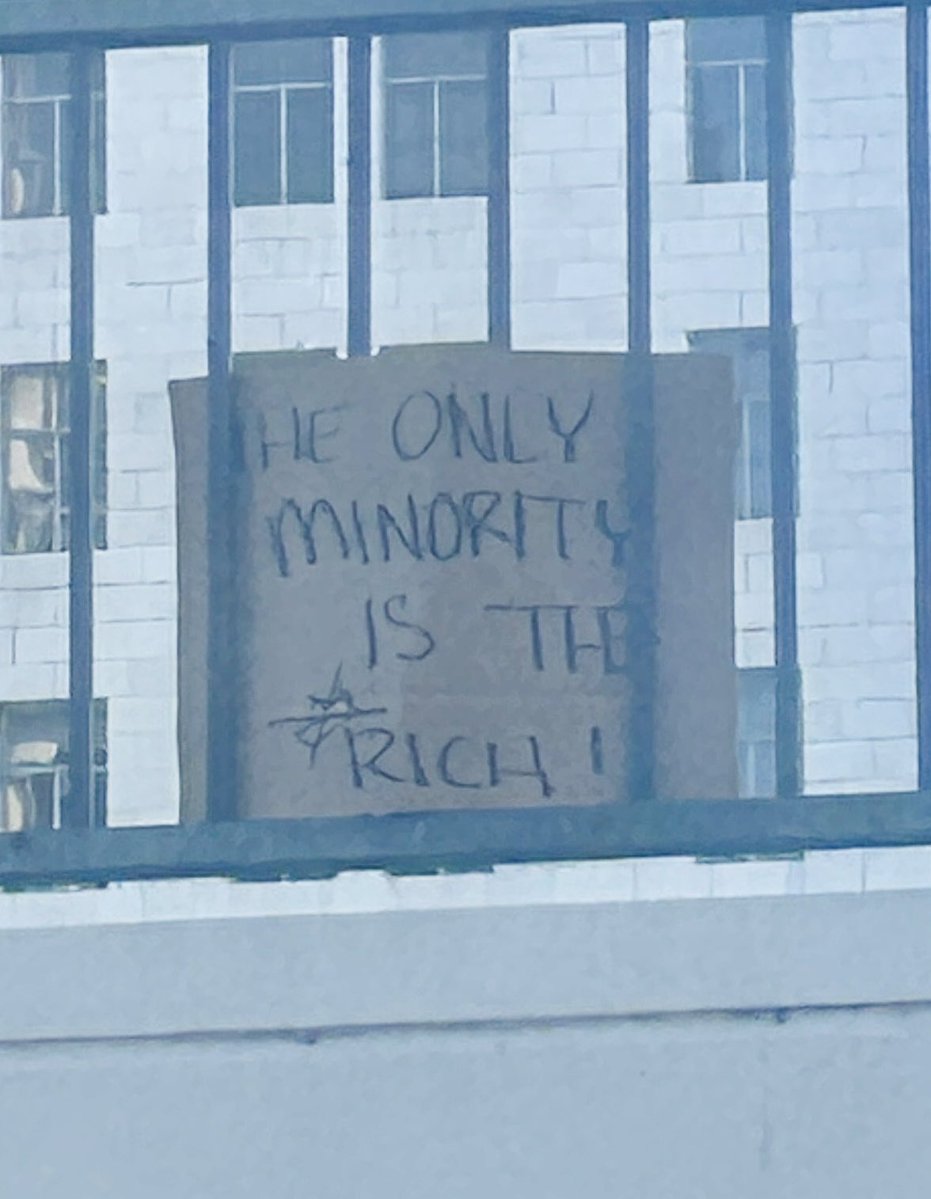 THE ONLY
MINORITY
IS THE
RICH!